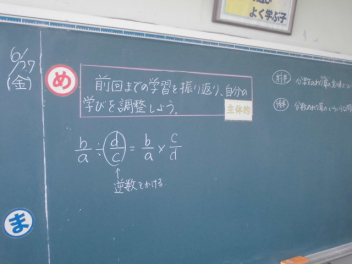 よく学ぶ子
6/27
(金)
め
前回までの学習を振り返り、自分の
学びを調整しよう。
主体的
b/a ÷ d/c = b/a × c/d
↑
逆数をかける
ま